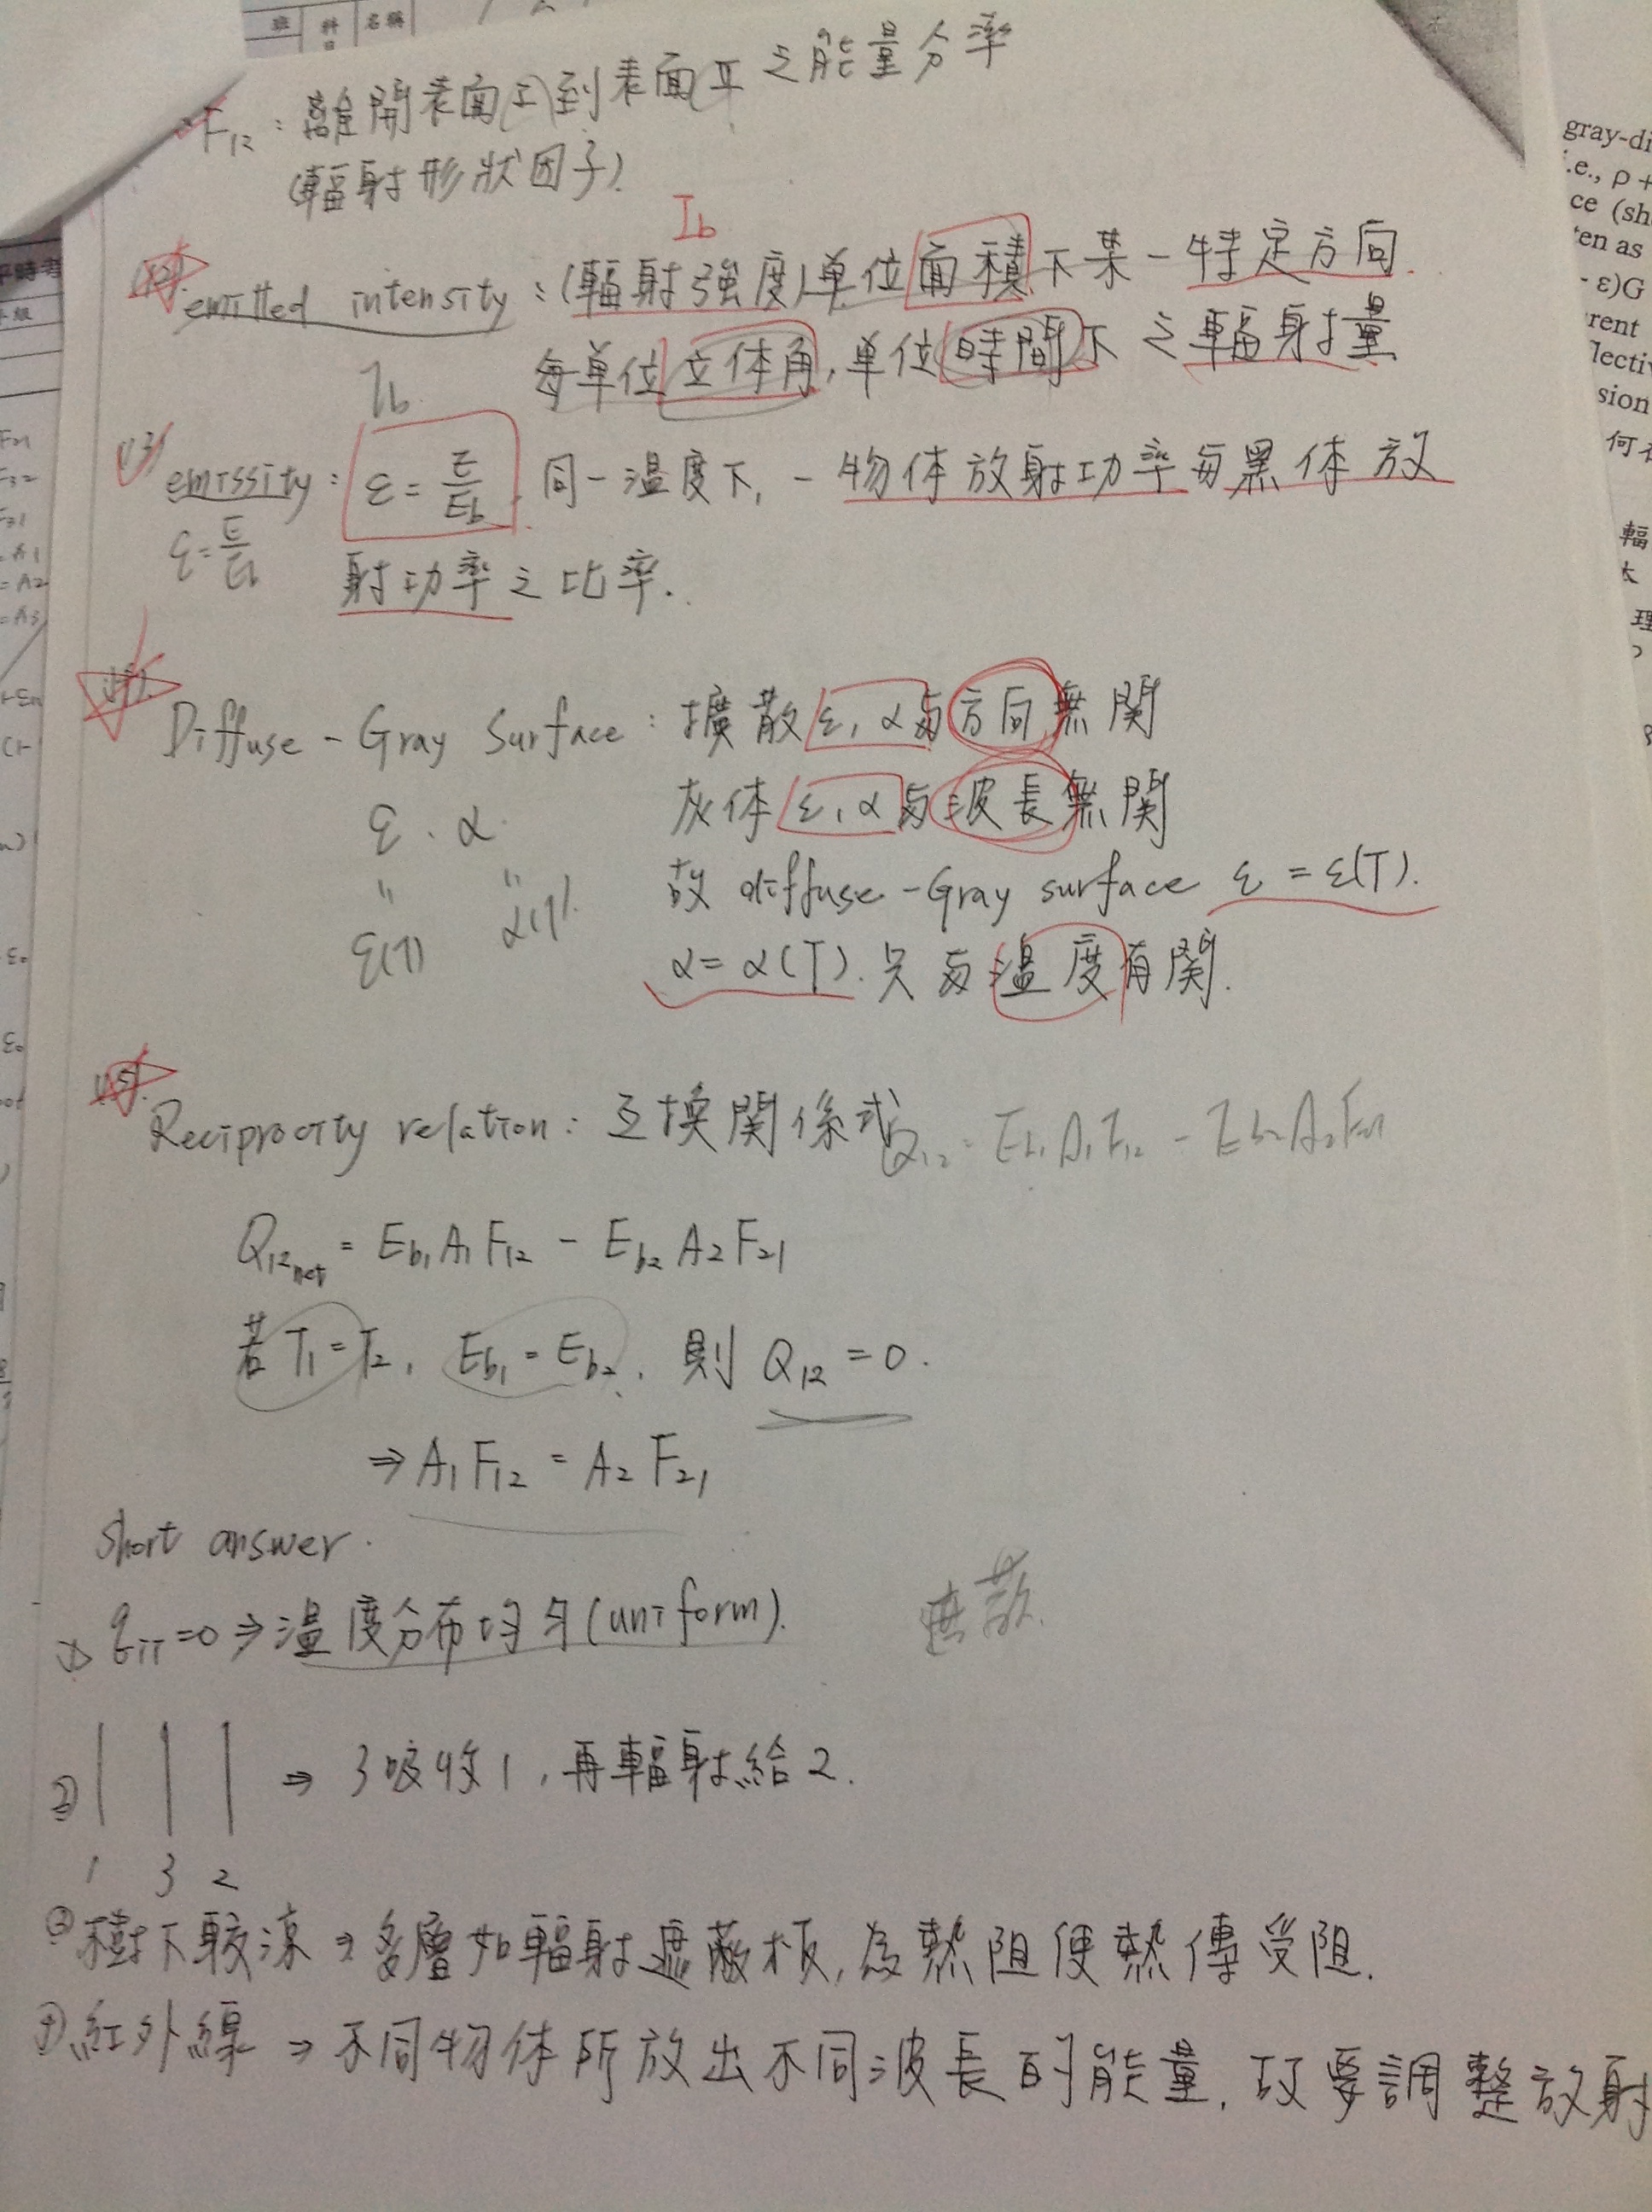 班 科目 名稱
F12：離開表面I到表面II之能量分率
(輻射形狀因子)
Ib
(12) emitted intensity：(輻射強度)單位面積下某一特定方向.
每單位立体角,單位時間下之輻射量
Ib
(13) emissity：ε = E/Eb, 同一溫度下,一物体放射功率與黑体放
ε = E/Eb
射功率之比率.
(14) Diffuse-Gray Surface：擴散 ε, α 与方向無関
灰体 ε, α 与波長無関
ε . α
故 diffuse-Gray surface ε = ε(T).
" "
ε(T) α(T).
α = α(T). 只与溫度有関.
(15) Reciprocity relation：互換関係式
Q12 = Eb1 A1 F12 - Eb2 A2 F21
Q12net = Eb1 A1 F12 - Eb2 A2 F21
若 T1 = T2, Eb1 = Eb2, 則 Q12 = 0.
⇒ A1 F12 = A2 F21
short answer.
遮蔽.
⇒溫度分布均勻(uniform).
② ⇒ 3吸收1,再輻射給2.
1 3 2
③樹下較涼⇒多層如輻射遮蔽板,為熱阻使熱傳受阻.
④紅外線⇒不同物体所放出不同波長的能量,故要調整放射
gray-di
.e., ρ +
ce (sh
en as
- ε)G
rent
lectiv
sion
何
輻
太
理
平時考
F21
F32
F31
= A1
= A2
= A3